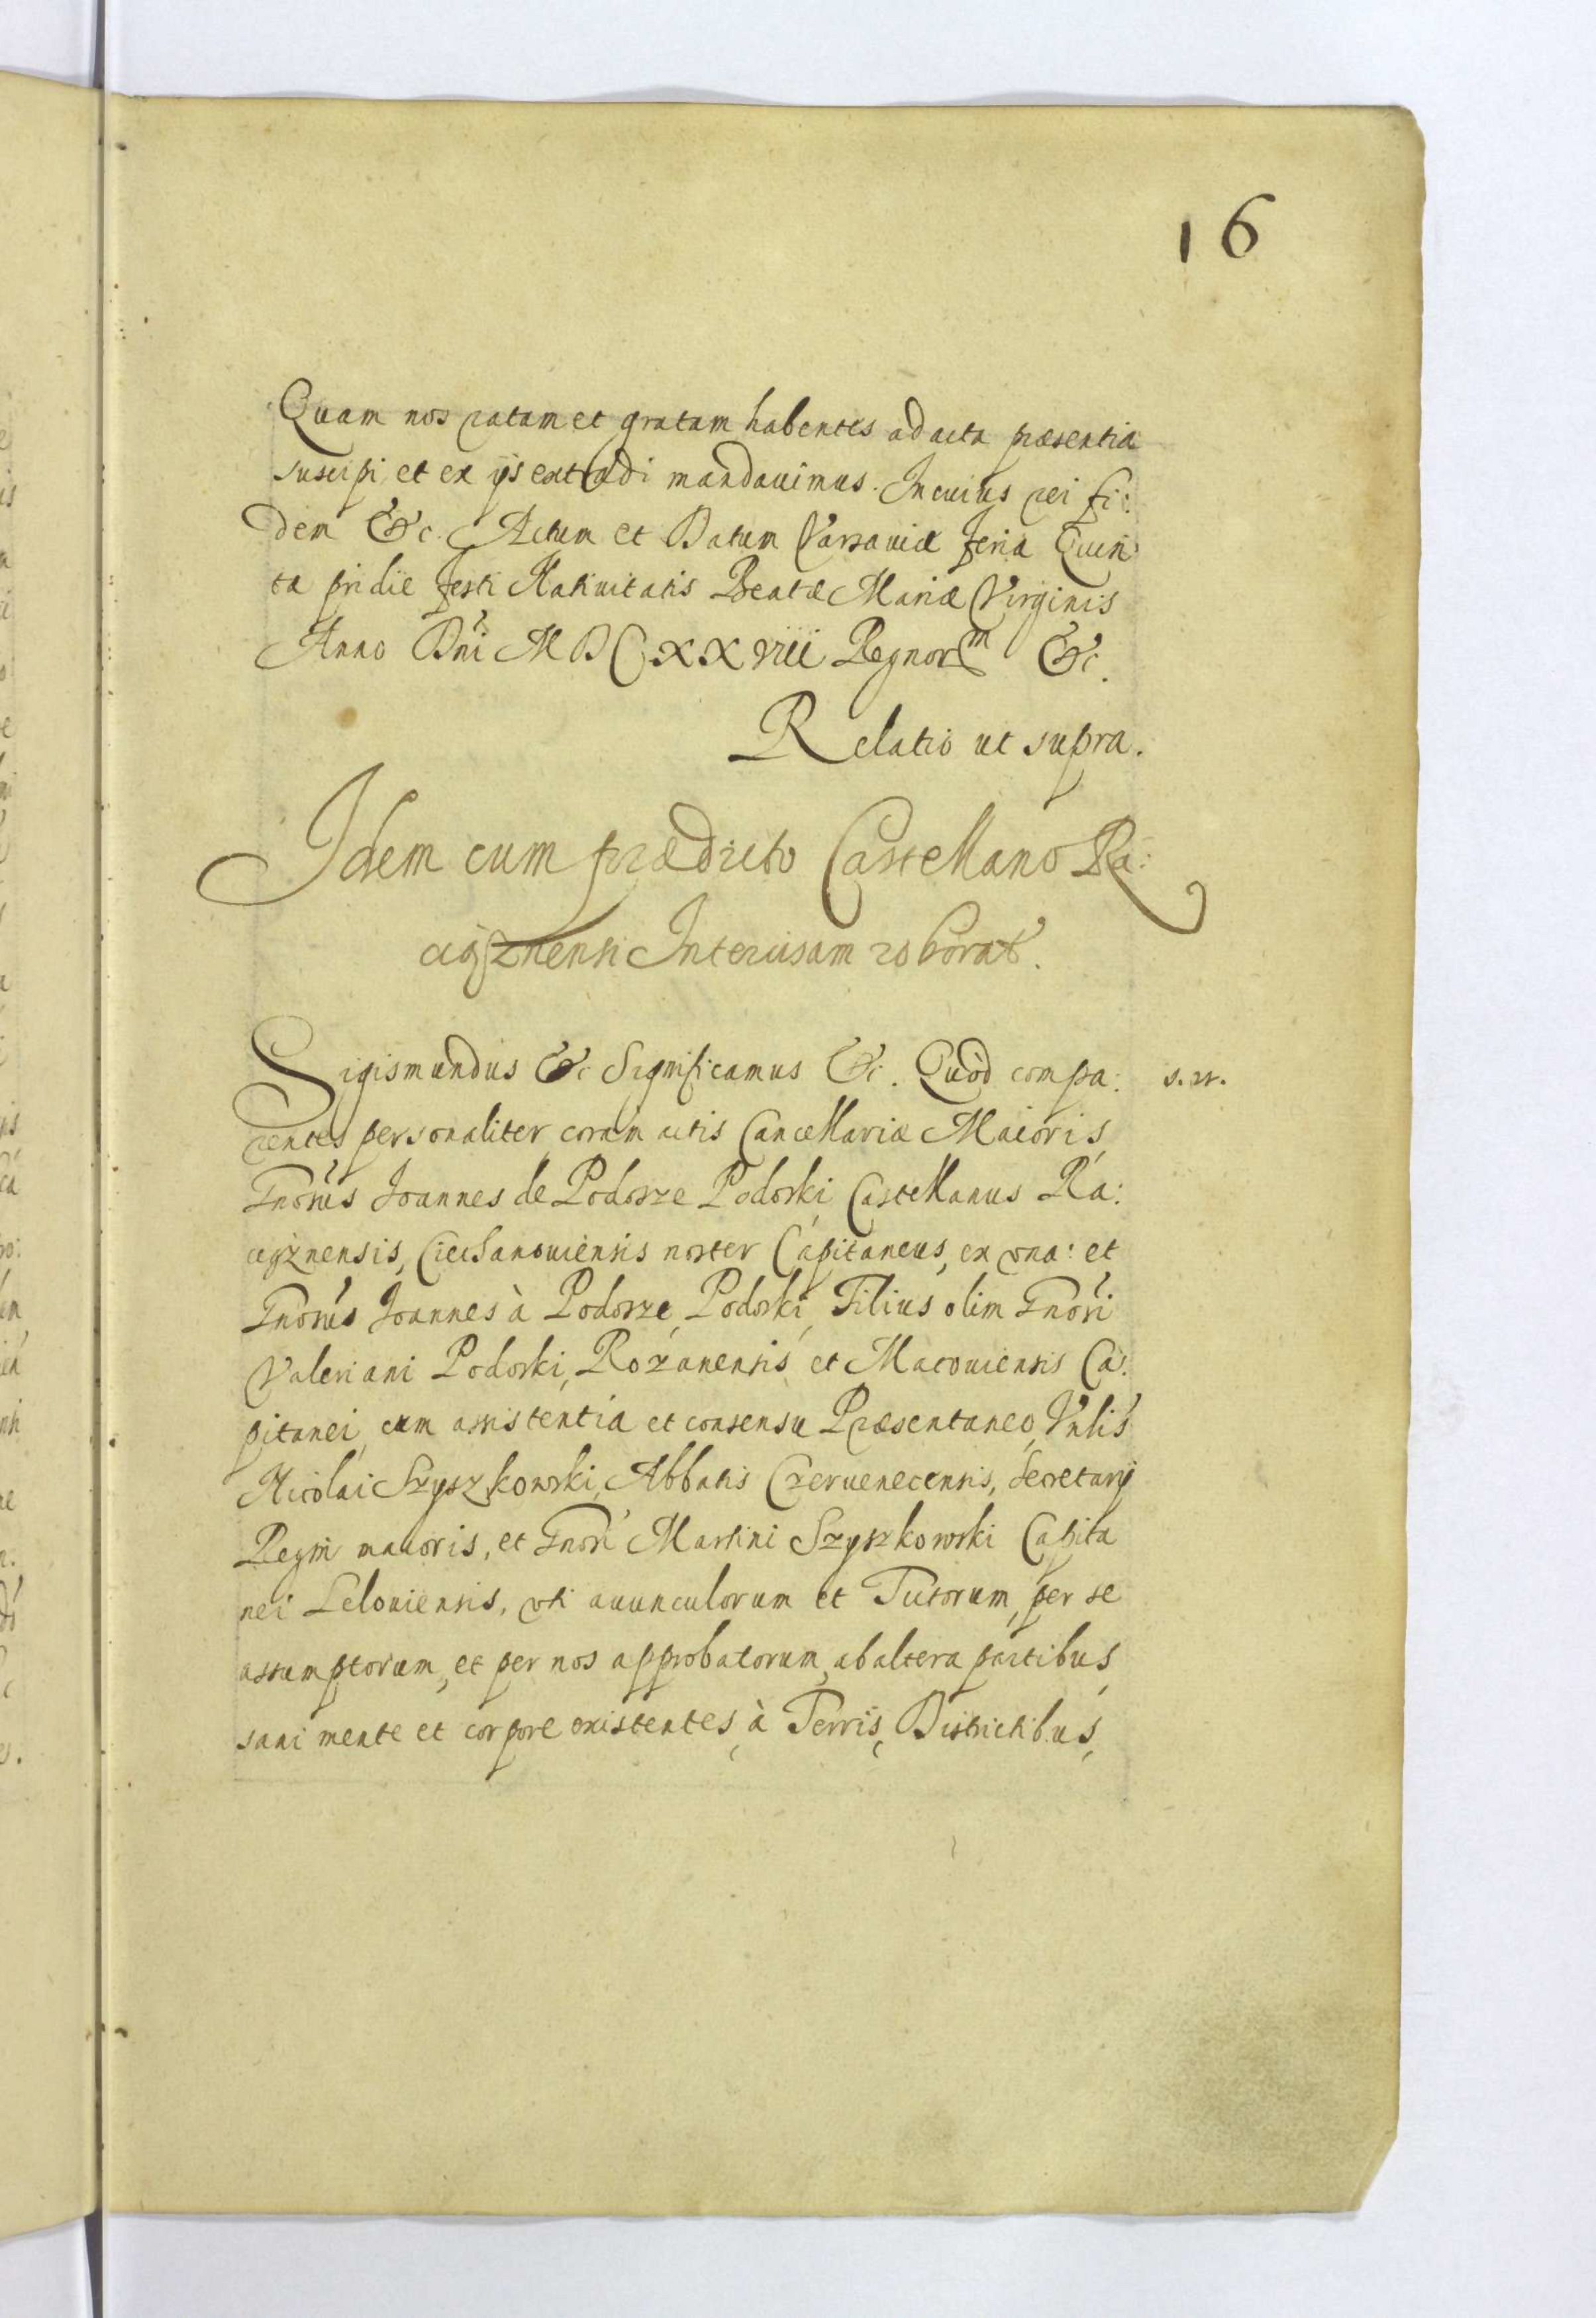 16
Quam nos ratam et gratam habentes ad acta præsentia
suscipi et ex ijs extradi mandauimus. In cuius rei fi:
dem &c. Actum et Datum Varsauiæ feria Quin
ta pridie festi Natiuitatis Beatæ Mariæ Virginis
Anno Dni MDCXXVIII Regnorm &c.
Relatio ut supra.
Idem cum prædicto Castellano Ra:
ciążnensi Intercisam roborat.
Sigismundus &c Significamus &c. Quòd compa: s. n.
rentes personaliter coram actis Cancellariæ Maioris,
Gnosus Joannes de Podosze Podoski Castellanus Ra:
ciążnensis, Ciechanouiensis noster Capitaneus, ex vna: et
Gnosus Joannes à Podosze, Podoski, Filius olim Gnosi
Valeriani Podoski, Rożanensis et Macouiensis Ca:
pitanei, cum assistentia et consensu Præsentaneo, Vnlis
Nicolai Szyszkowski, Abbatis Czeruenecensis, Secretarij
Regni maioris, et Gnosi Martini Szyszkowski Capita
nei Lelouiensis, vti auunculorum et Tutorum, per se
assumptorum, et per nos approbatorum, ab altera partibus,
sani mente et corpore existentes, à Terris, Districtibus,